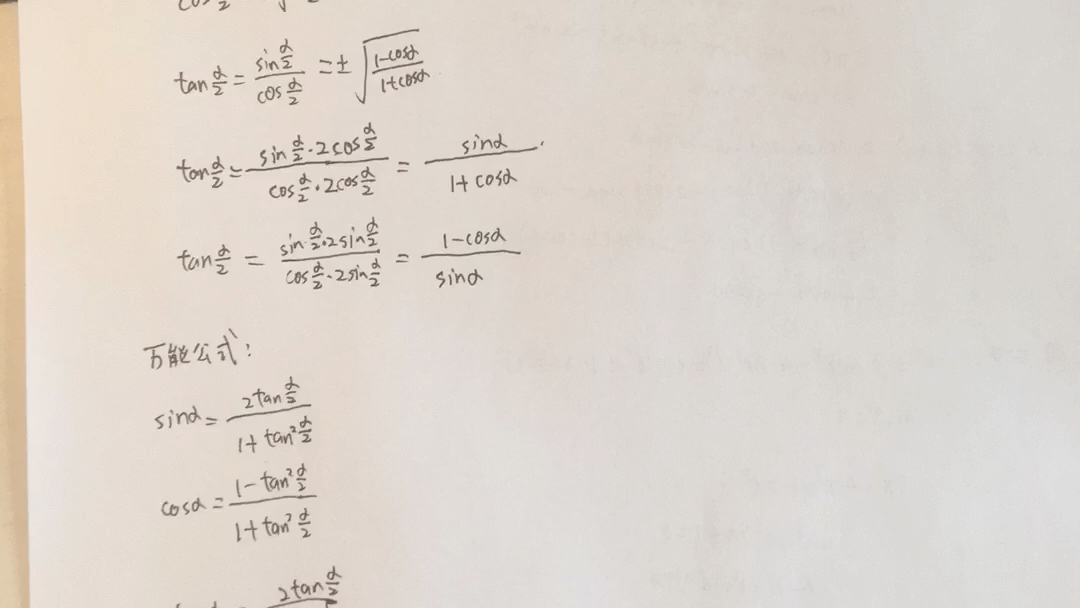 tan α/2 = sin α/2 / cos α/2 = ± √((1-cosα)/(1+cosα))
tan α/2 = (sin α/2 · 2cos α/2) / (cos α/2 · 2cos α/2) = sinα / (1+cosα).
tan α/2 = (sin α/2 · 2sin α/2) / (cos α/2 · 2sin α/2) = (1-cosα) / sinα
万能公式:
sinα = 2tan α/2 / (1+tan² α/2)
cosα = (1-tan² α/2) / (1+tan² α/2)
2tan α/2